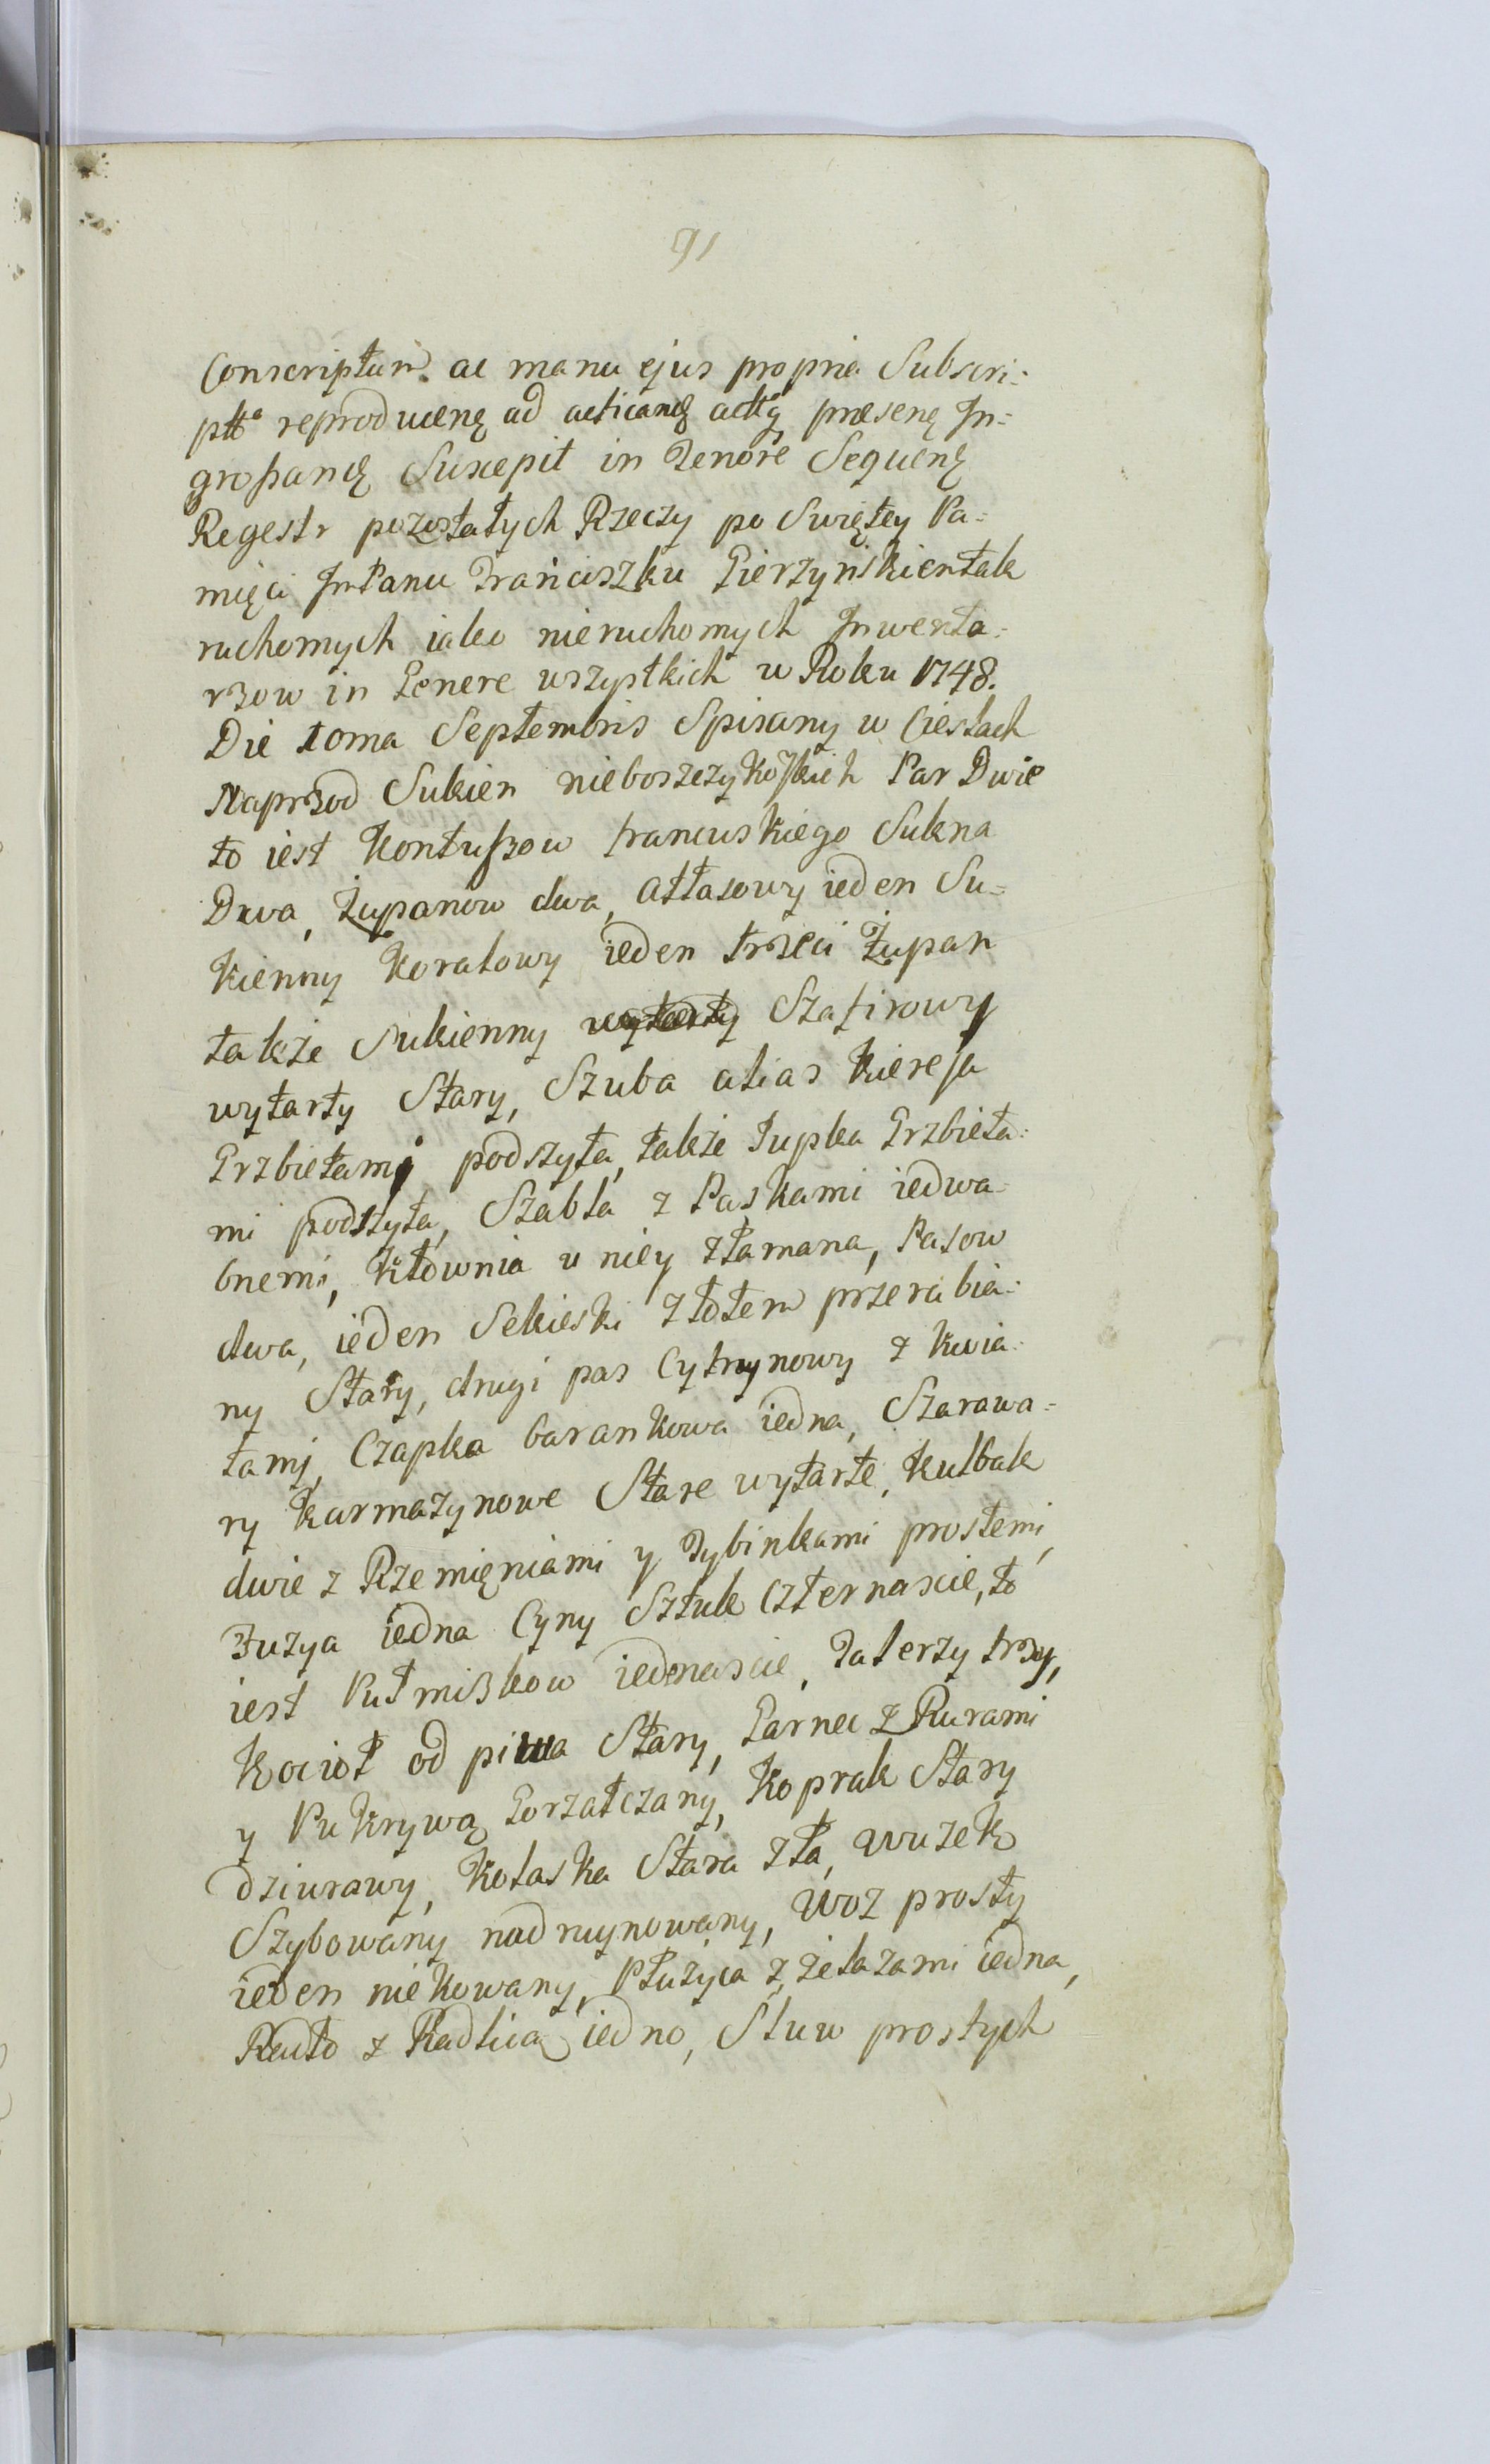 91
Conscriptum ac manu ejus propria Subscri:
ptt̃a reproducenę ad acticandę actq, præsenę In=
großandę Suscepit in Tenore Sequenę
Regestr pozostałych Rzeczy po Swiętey Pa=
mięci JmPanu Franciszku Gierzyńskiem tak
ruchomych iako nieruchomych Inwenta=
rzow in Genere wszystkich w Roku 1748.
Die 10ma Septembris Spisany w Cieslach
Naprzod Sukien nieboszczykowskich Par Dwie
to iest Kontuszow francuskiego Sukna
Dwa, Żupanow dwa, Attłasowy ieden Su=
kienny Koralowy ieden trzeci Żupan
także Sukienny Szafirowy
wytarty Stary, Szuba alias Kiereja
Grzbietami podszyta, także Jupka Grzbieta=
mi podszyta, Szabla z Paskami iedwa=
bnemi, Kłownia u niey złamana, Pasow
dwa, ieden Sekieski złotem przerabia=
ny Stary, drugi pas Cytrynowy z kwia=
tami, Czapka barankowa iedna, Szarawa=
ry Karmazynowe Stare wytarte, Kulbak
dwie z Rzemięniami y Tybinkami prostemi,
Fuzya iedna Cyny Sztuk Czternascie, to
iest Pułmiskow iedenascie, Talerzy trzy,
Kocioł od piwa Stary, Garnec z Rurami
y Pukrywą Gorzałczany, Koprak Stary
dziurawy, Kolaska Stara zła, Wuzek
Szybowany nadruynowany, Woz prosty
ieden niekowany, Płużyca z żelazami iedna,
Radło z Radlicą iedno, Sluw prostych